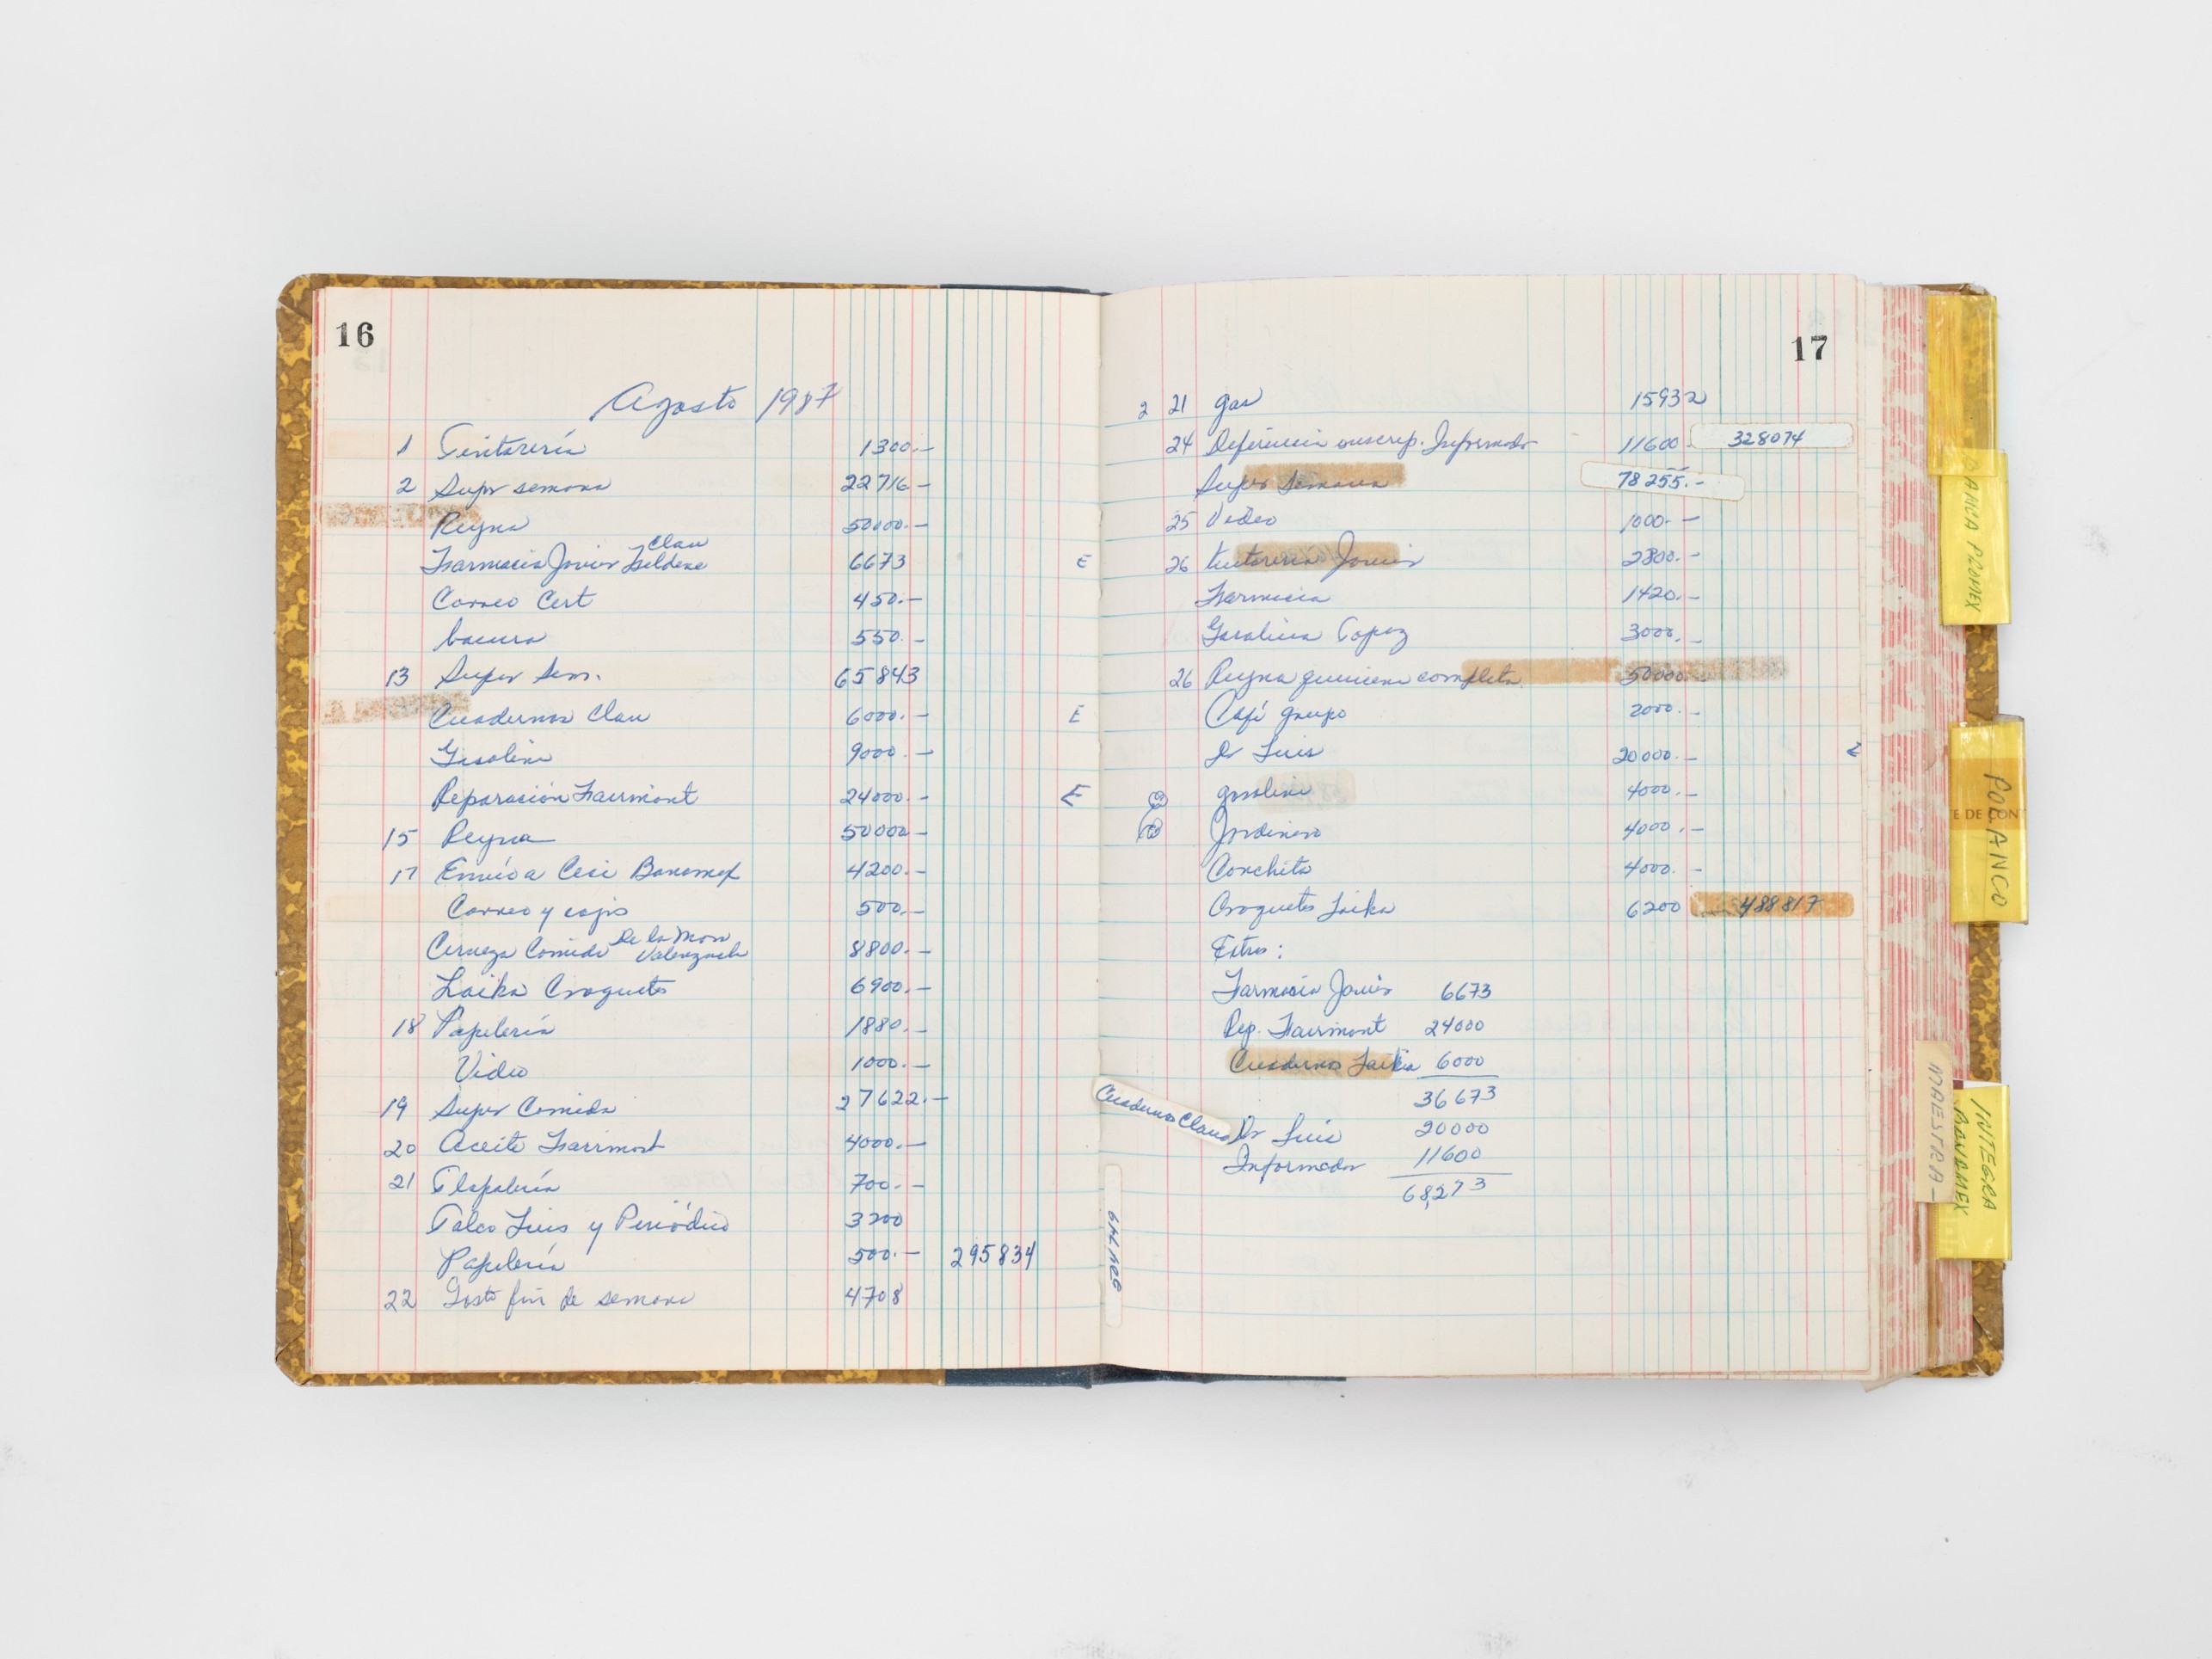 16
Agosto 1987
1 Tintorería 1300.-
2 Super semana 22716-
Reyna 50000.-
Clau
Farmacia Javier Feldene 6673 E
Correo Cert 450.-
basura 550.-
13 Super Sem. 65843
Cuadernos Clau 6000.- E
Gasolina 9000.-
Reparación Fairmont 24000.- E
15 Reyna 50000-
17 Envío a Ceci Banamex 4200.-
Correo y cajis 500.-
De la Mora
Cerveza Comida Valenzuela 8800.-
Laika Croquetas 6900.-
18 Papelería 1880.-
Video 1000.-
19 Super Comida 27622.-
20 Aceite Fairmont 4000.-
21 Tlapalería 700.-
Talco Luis y Periódico 3200
Papelería 500.- 295834
22 Gasto fin de semana 4708
17
2 21 gas 15932
24 Diferencia suscrip. Informador 11600- 328074
Super Semana 78255.-
25 Video 1000.-
26 tintorería Javier 2800.-
Farmacia 1420.-
Gasolina Topaz 3000.-
26 Reyna quincena completa 50000.-
Café grupo 2000.-
Dr Luis 20000.-
gasolina 4000.-
Jardinero 4000.-
Conchita 4000.-
Croquetas Laika 6200 488817
Extras:
Farmacia Javier 6673
Rep. Fairmont 24000
Cuadernos Laika 6000
36673
Cuadernos Clau
Dr Luis 20000
Informador 11600
68,273
BANCA PROMEX
POLANCO
E DE CONT
MAESTRA-
INTEGRA
BANAMEX